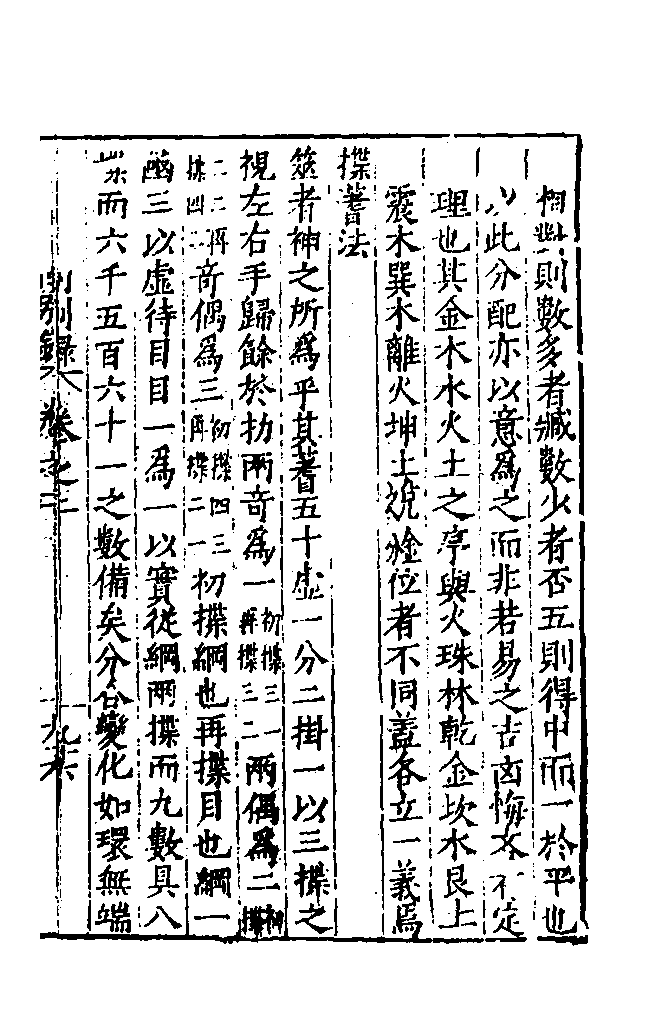 則數多者臧數少者否五則得中而一於平也
此分配亦以意爲之而非若易之吉凶悔吝不定
理也其金木水火土之序與火珠林乾金坎水艮土
震木巽木離火坤土兌金位者不同蓋各立一義焉
揲蓍法
筮者神之所爲乎其蓍五十虛一分二掛一以三揲之
視左右手歸餘於扐兩奇爲一初揲三一再揲三二兩偶爲二初揲
二二再揲四二奇偶爲三初揲四三再揲二一初揲綱也再揲目也綱一
函三以虛待目目一爲一以實從綱兩揲而九數具八
揲而六千五百六十一之數備矣分合變化如環無端
別錄 卷之二 九六